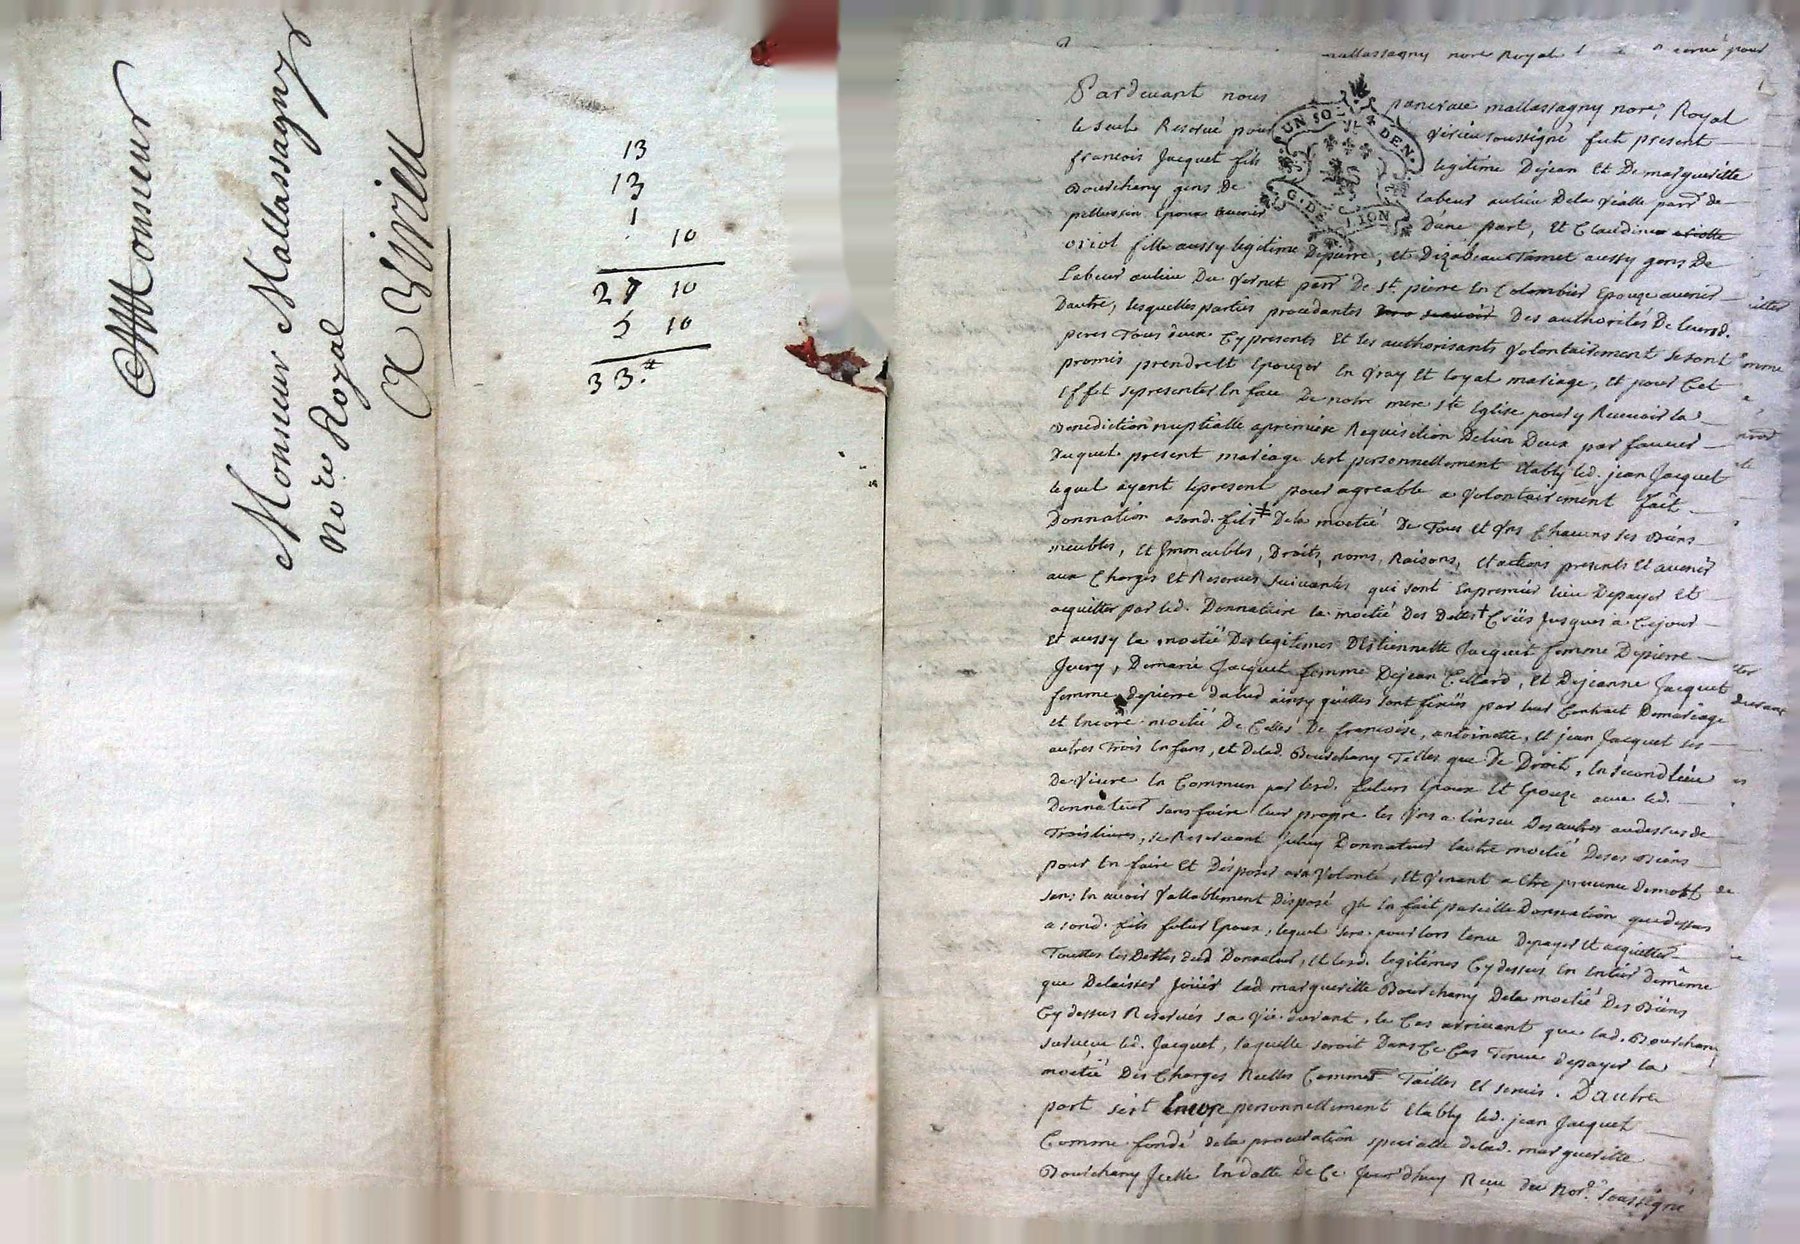 Monsieur
Monsieur Mallassagny
no.re Royal
a Virieu
13
13
1
10
27 10
5 10
33.#
mallassagny nore Royal
Pardevant nous pancrace mallassagny nore. Royal
le seul Reservé pour virieu soussigné fut present
françois Jacquet fils legitime Dejean Et De margueritte
Bourchany gens de labeur aulieu Dela vialle parr. de
pellussin Epoux avenir D'une part, Et Claudine
oriol fille aussy legitime Depierre, et Dizabeau Tamet aussy gens De
Labeur aulieu Du vernet parr. De st. pierre En Colombier Epouze avenir
Dautre, lesquelles parties procedantes Des authorités De leursd.
peres Tous deux Cy presents Et les authorisants volontairement se sont
promis prendre Et Epouzer En vray Et loyal mariage, Et pour Cet
Effet se presenter En face De notre mere ste Eglise pour y Recevoir la
Benediction nuptialle apremiere Requisition De lun Deux par faveur
Duquel present mariage sest personnellement Etably led. jean Jacquet
lequel ayant lepresent pour agreable a volontairement fait
Donnation asond. fils ‡ Dela moetié De Tous Et vns Chacuns ses Biens
meubles, Et Jmmeubles, Droits, noms, Raisons, Et actions presents Et avenir
aux Charges Et Reserves suivantes qui sont Enpremier lieu Depayer Et
acquitter par led. Donnataire la moetié Des Dettes † Créés jusques a Cejour
Et aussy la moetié Deslegitimes DEstiennette Jacquet femme Depierre
Juery, Demarie Jacquet femme Dejean Cellard, Et Dejeanne Jacquet
femme depierre dalud ainsy quelles sont fixées par leur Contract Demariage
et Encore moetié De Celles De françoise, antoinette, Et jean Jacquet ses
autres Trois Enfans, et Delad. Bourchany Telles que De Droit, En second lieu
De vivre En Commun par lesd. futurs Epoux Et Epouze avec led.
Donnateur sans faire leur propre les vns a linsceu Des autres audessus de
Trois livres, se Reservant Jceluy Donnateur lautre moetié Deses Biens
pour En faire Et Disposer asa volonté, Et venant a Etre prevenu Demort
sans En avoir vallablement Disposé Jl En fait pareille Donnation que dessus
a sond. fils futur Epoux, lequel sera pour lors tenu Depayer Et acquitter
Touttes les Dettes dud Donnateur, Et lesd. legitimes Cy dessus En Entier Demême
que Delaisser Joüir lad margueritte Bourchany Dela moetié Des Biens
Cy dessus Reservés sa vie durant, le Cas arrivant que lad. Bourchany
survive led. Jacquet, laquelle seroit Dans Ce Cas Tenue depayer la
moetié Des Charges Reelles Comme Tailles Et servis. D'autre
part sest Encore personnellement Etably led. jean Jacquet
Comme fondé dela procuration specialle delad. margueritte
Bourchany Jcelle En datte De Ce Jourdhuy Reçue du Nore. soussigné